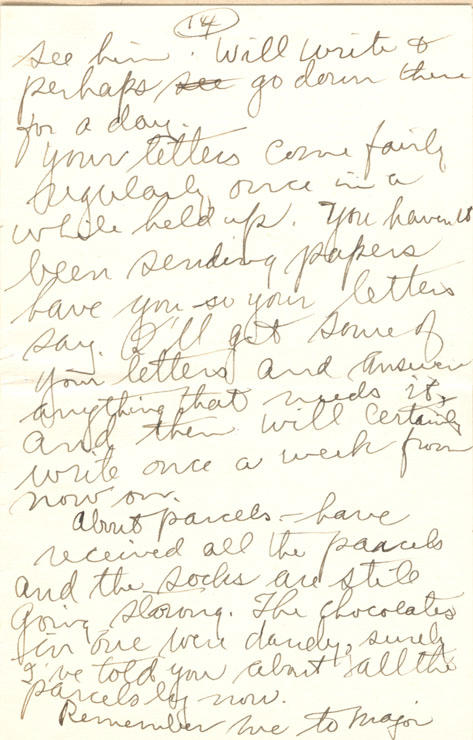 14
see him. Will write &
perhaps see go down there
for a day.
Your letters come fairly
regularly, once in a
while held up. You haven't
been sending papers
have you so your letters
say. I'll get some of
your letters and answer
anything that needs it,
and then will certainly
write once a week from
now on.
About parcels - have
received all the parcels
and the socks are still
going strong. The chocolates
in one were dandy, surely
I've told you about all the
parcels by now.
Remember me to Major